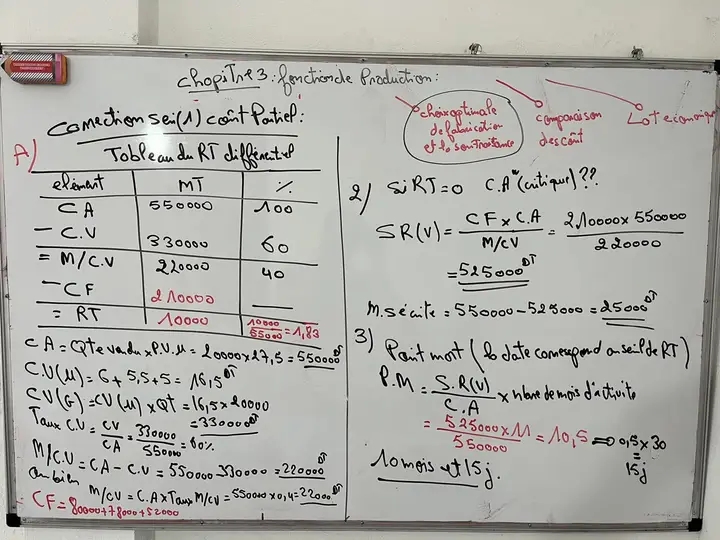 chapitre 3 : fonction de Production :
choix optimale
de fabrication
et la sous-traitance
comparaison
des coût
Lot economique
Correction seri(1) coût Partiel :
A/
Tableau du RT différentiel
elément MT %
CA 550000 100
- C.V 330000 60
= M/C.V 220000 40
- CF 210000 —
= RT 10000 10000/55000 = 1,83
CA = QTe vendu x P.V.U = 20000 x 27,5 = 550000 DT
C.V(U) = 6 + 5,5 + 5 = 16,5 DT
CV(G) = CV(U) x QT = 16,5 x 20000
= 330000 DT
Taux C.V = CV/CA = 330000/55000 = 60%
M/C.V = CA - C.V = 550000 - 330000 = 220000 DT
ou bien M/CV = C.A x Taux M/CV = 550000 x 0,4 = 22000 DT
- CF = 80000 + 78000 + 52000
2) Si RT = 0 C.A* (critique) ??
SR(V) = CF x C.A / M/CV = 210000 x 550000 / 220000
= 525000 DT
M. sécurite = 550000 - 525000 = 25000 DT
3) Point mort (la date correspond au seuil de RT)
P.M = S.R(V) / C.A x nbre de mois d'activite
= 525000 x 11 / 550000 = 10,5 ⇒ 0,5 x 30
=
15j
10 mois et 15 j.